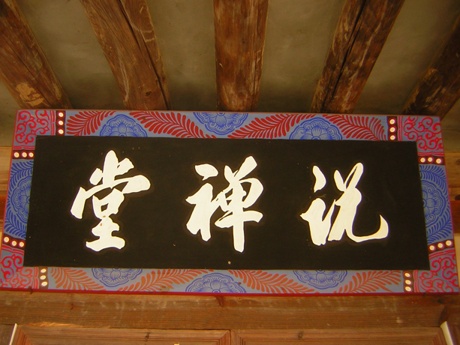 说禅堂